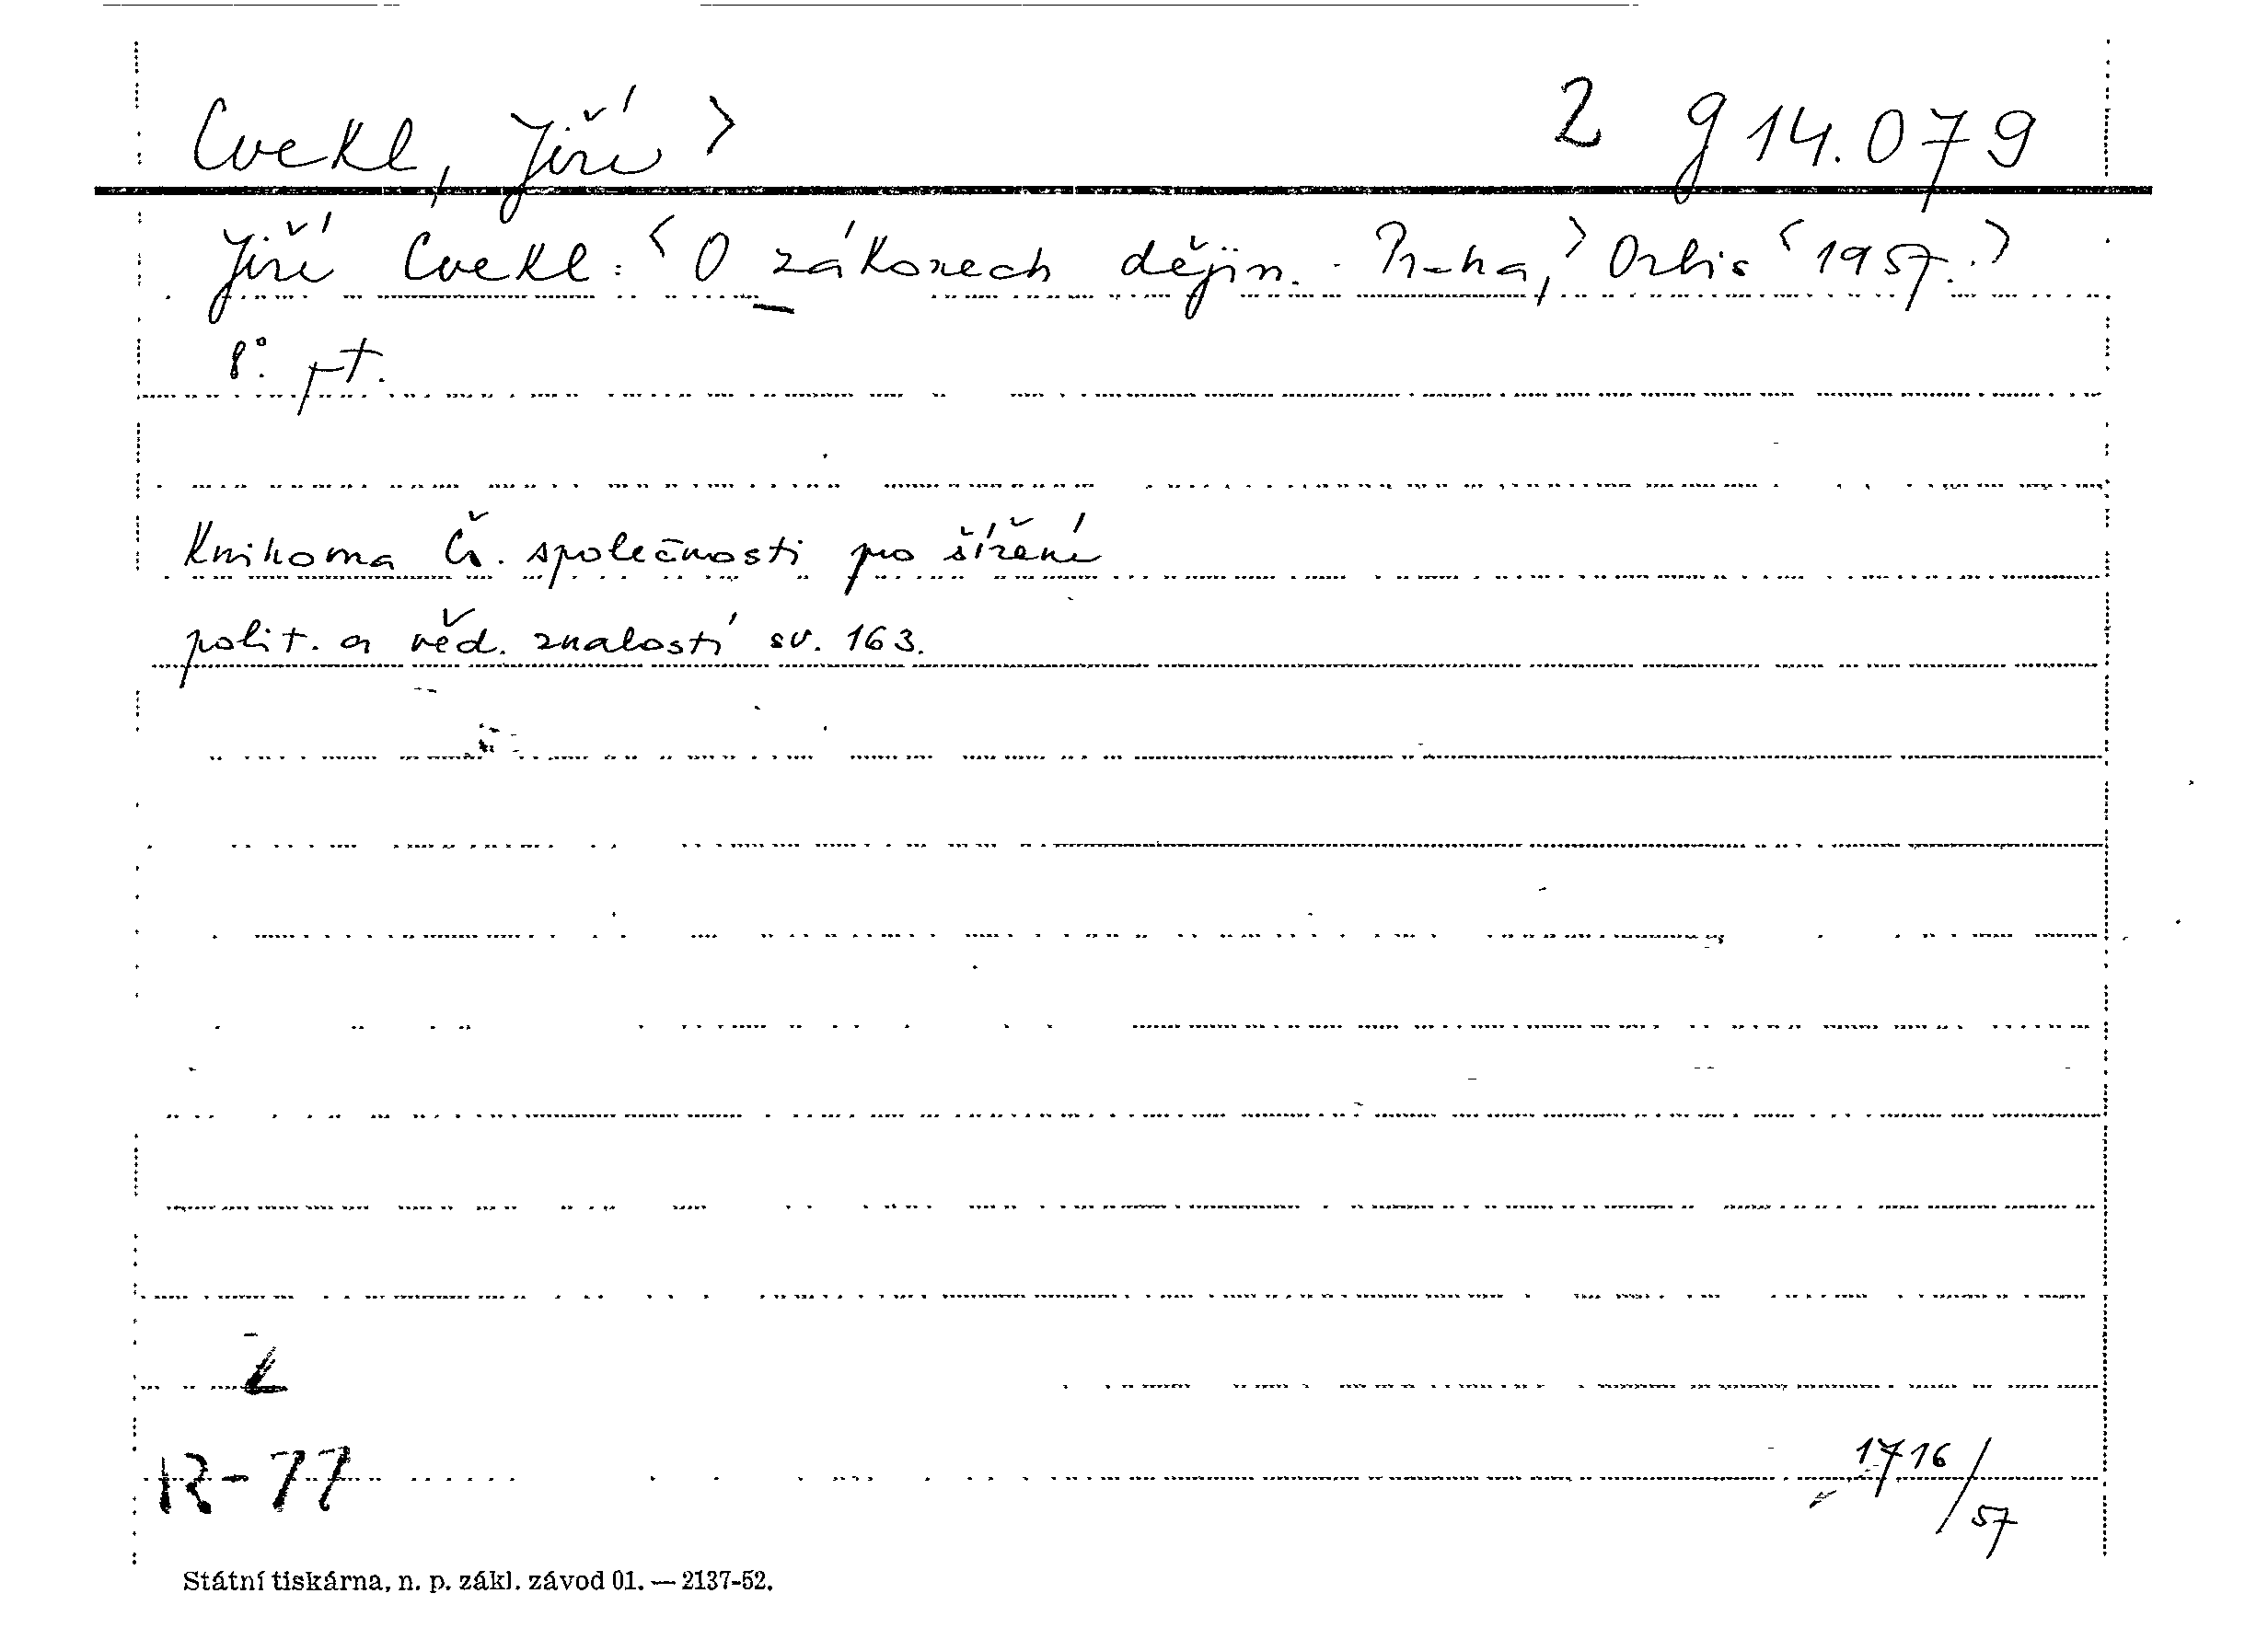 Cvekl, Jiří > 2 g 14.079
Jiří Cvekl: < O zákonech dějin. - Praha, > Orbis < 1957. >
8°. pt.
Knihovna Čs. společnosti pro šíření
polit. a věd. znalostí sv. 163.
2
R-77
1716/57
Státní tiskárna, n. p. zákl. závod 01. — 2137-52.